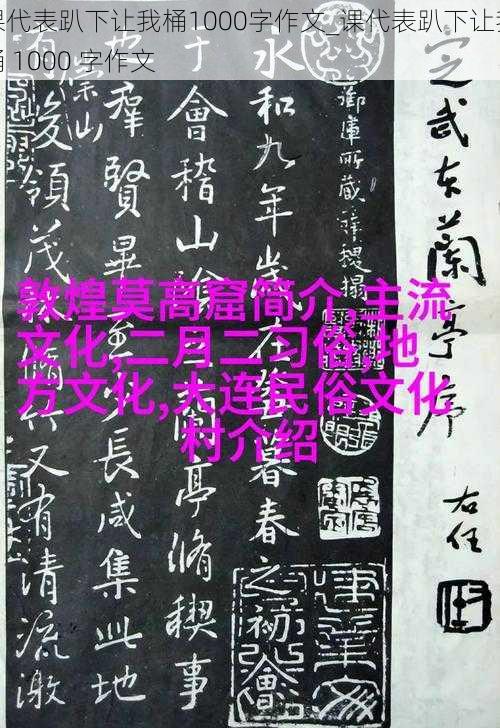 课代表趴下让我桶1000字作文_课代表趴下让
桶 1000 字作文
敦煌莫高窟简介,主流
文化,二月二习俗,地
方文化,大连民俗文化
村介绍
定武本蘭亭序
右任
永和九年歲在暮春之初會
于會稽山蘭亭脩禊事
群賢畢至少長咸集此地
有崇山峻領茂脩又有清流激